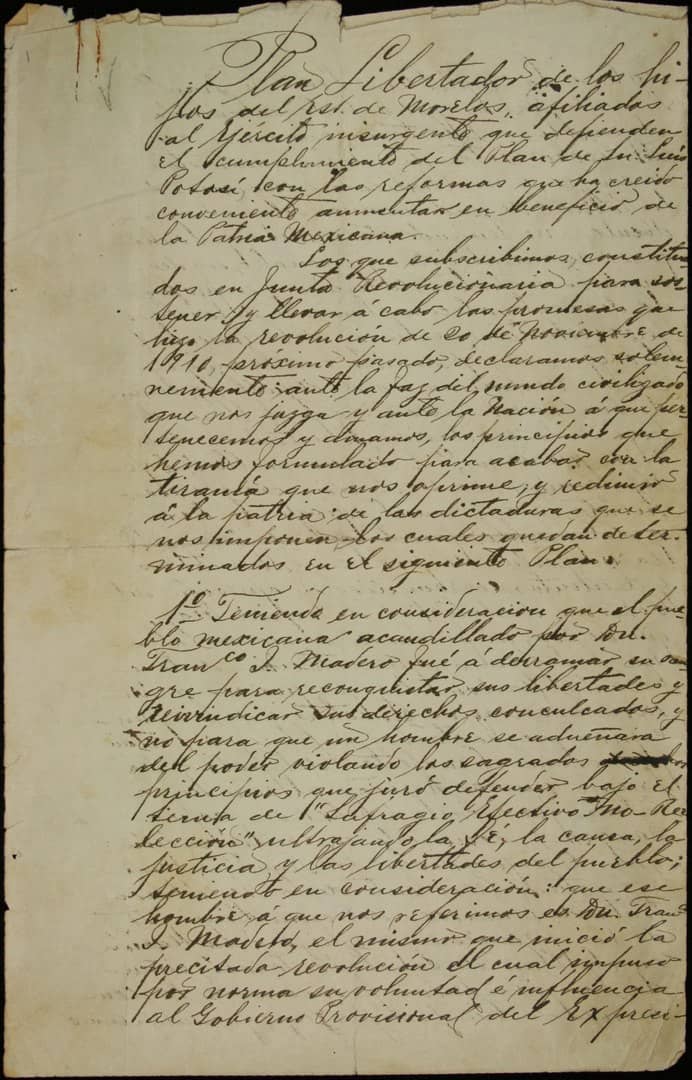 Plan Libertador de los hi-
jos del Est. de Morelos, afiliados
al Ejército insurgente que defienden
el cumplimiento del Plan de Sn. Luis
Potosí con las reformas que ha creido
conveniente aumentar en beneficio de
la Patria Mexicana.
Los que subscribimos, constitui-
dos en Junta Revolucionaria para sos-
tener y llevar á cabo las promesas que
hizo la revolución de 20 de Noviembre de
1910, próximo pasado, declaramos solem-
nemente ante la faz del mundo civilizado
que nos juzga y ante la Nación á que per-
tenecemos y amamos, los principios que
hemos formulado para acabar con la
tiranía que nos oprime, y redimir
á la patria de las dictaduras que se
nos imponen los cuales quedan deter-
minados en el siguiente Plan.
1º Teniendo en consideracion que el pue-
blo mexicano acaudillado por Dn.
Franco. I. Madero fué á derramar su san
gre para reconquistar sus libertades y
reivindicar sus derechos conculcados, y
no para que un hombre se adueñara
del poder violando los sagrados
principios que juró defender bajo el
tema de "Sufragio Efectivo No-Ree
lección" ultrajando la fé, la causa, la
justicia y las libertades del pueblo;
teniendo en consideración: que ese
hombre á que nos referimos es Dn. Franco
I. Madero, el mismo que inició la
precitada revolución el cual impuso
por norma su voluntad é influencia
al Gobierno Provisional del Ex presi-